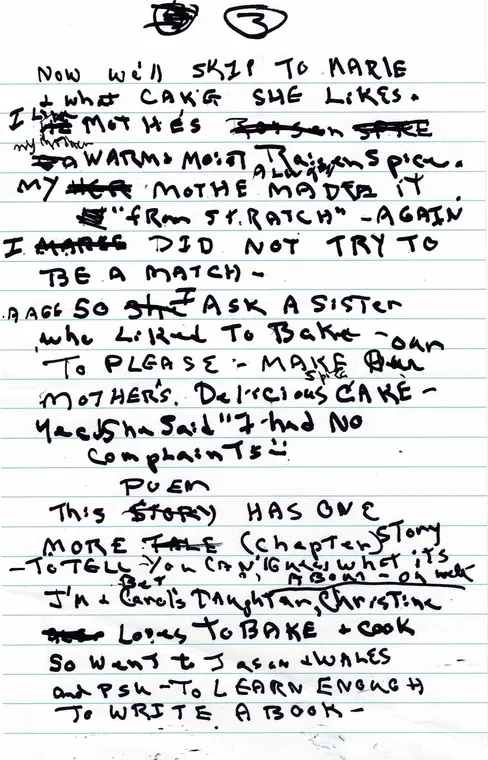 3
Now we'll SKIP TO MARIE
+ what CAKE SHE LiKES.
I like MOTHE'S
my mother
A WARM + MOIST Raisen Spice.
ALWAYS
MY MOTHE MADE iT
"fROM SCRATCH" - AGAIN
I DID NOT TRY TO
BE A MATCH -
SO I ASK A SiSTER
who LiKed To BAKe -
TO PLEASE - MAKE our
Spice
MOTHER'S. Delicious CAKE -
She Said "I had No
ComplainTs
POEM
This HAS ONE
MORE (Chapter) STORY
- TO TELL You CAN, Guess what iT's
ABOUT - oh well
Bet
I'm + Carol's DAughter, Christine
Loves To BAKE + Cook
So wenT to
and PSU - To LEARN ENOUGH
To WRiTE A BOOK -